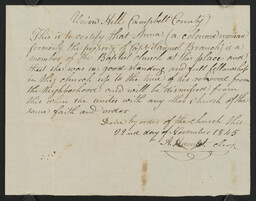 Union Hill Campbell County
This is to certify that Anna (a coloured woman
formerly the property of Capt Samuel Branch) is a
member of the Baptist church at this place and
that she was in good standing and full fellowship
in this church up to the time of his removal from
the Neighborhood and will be dismissed from
this when she unites with any other church of the
same faith and order
Done by order of the church this
22nd day of November 1845
A. Clerk